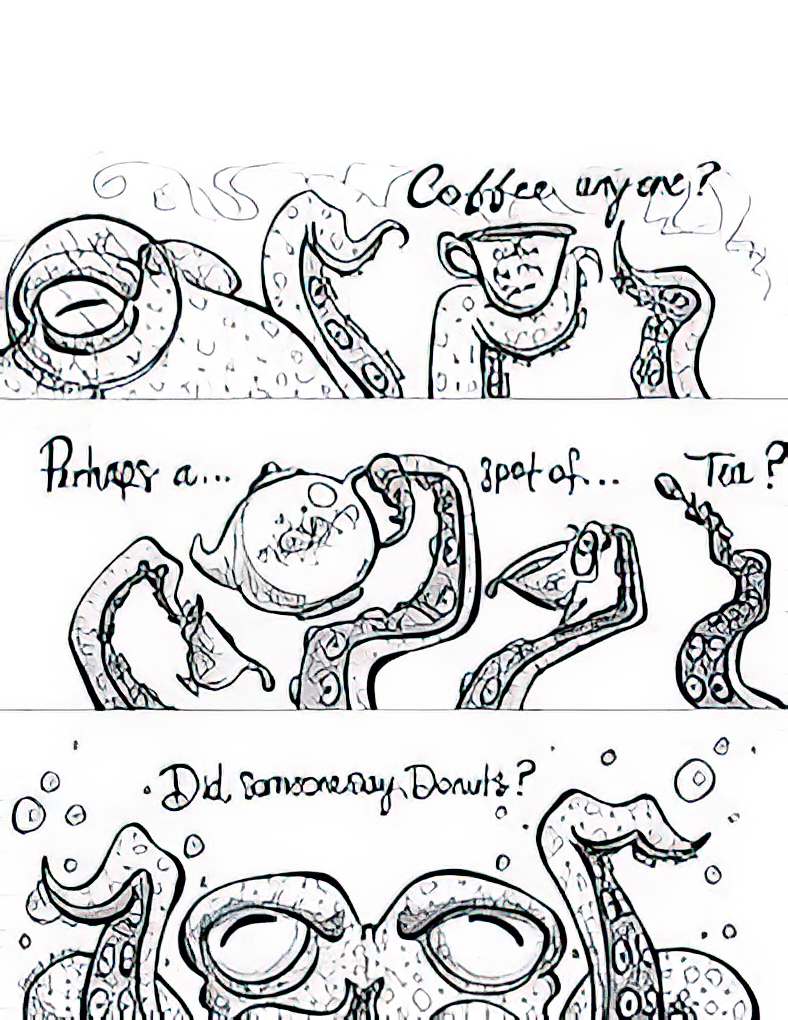 Coffee anyone?
Perhaps a... spot of... Tea?
Did someone say Donuts?